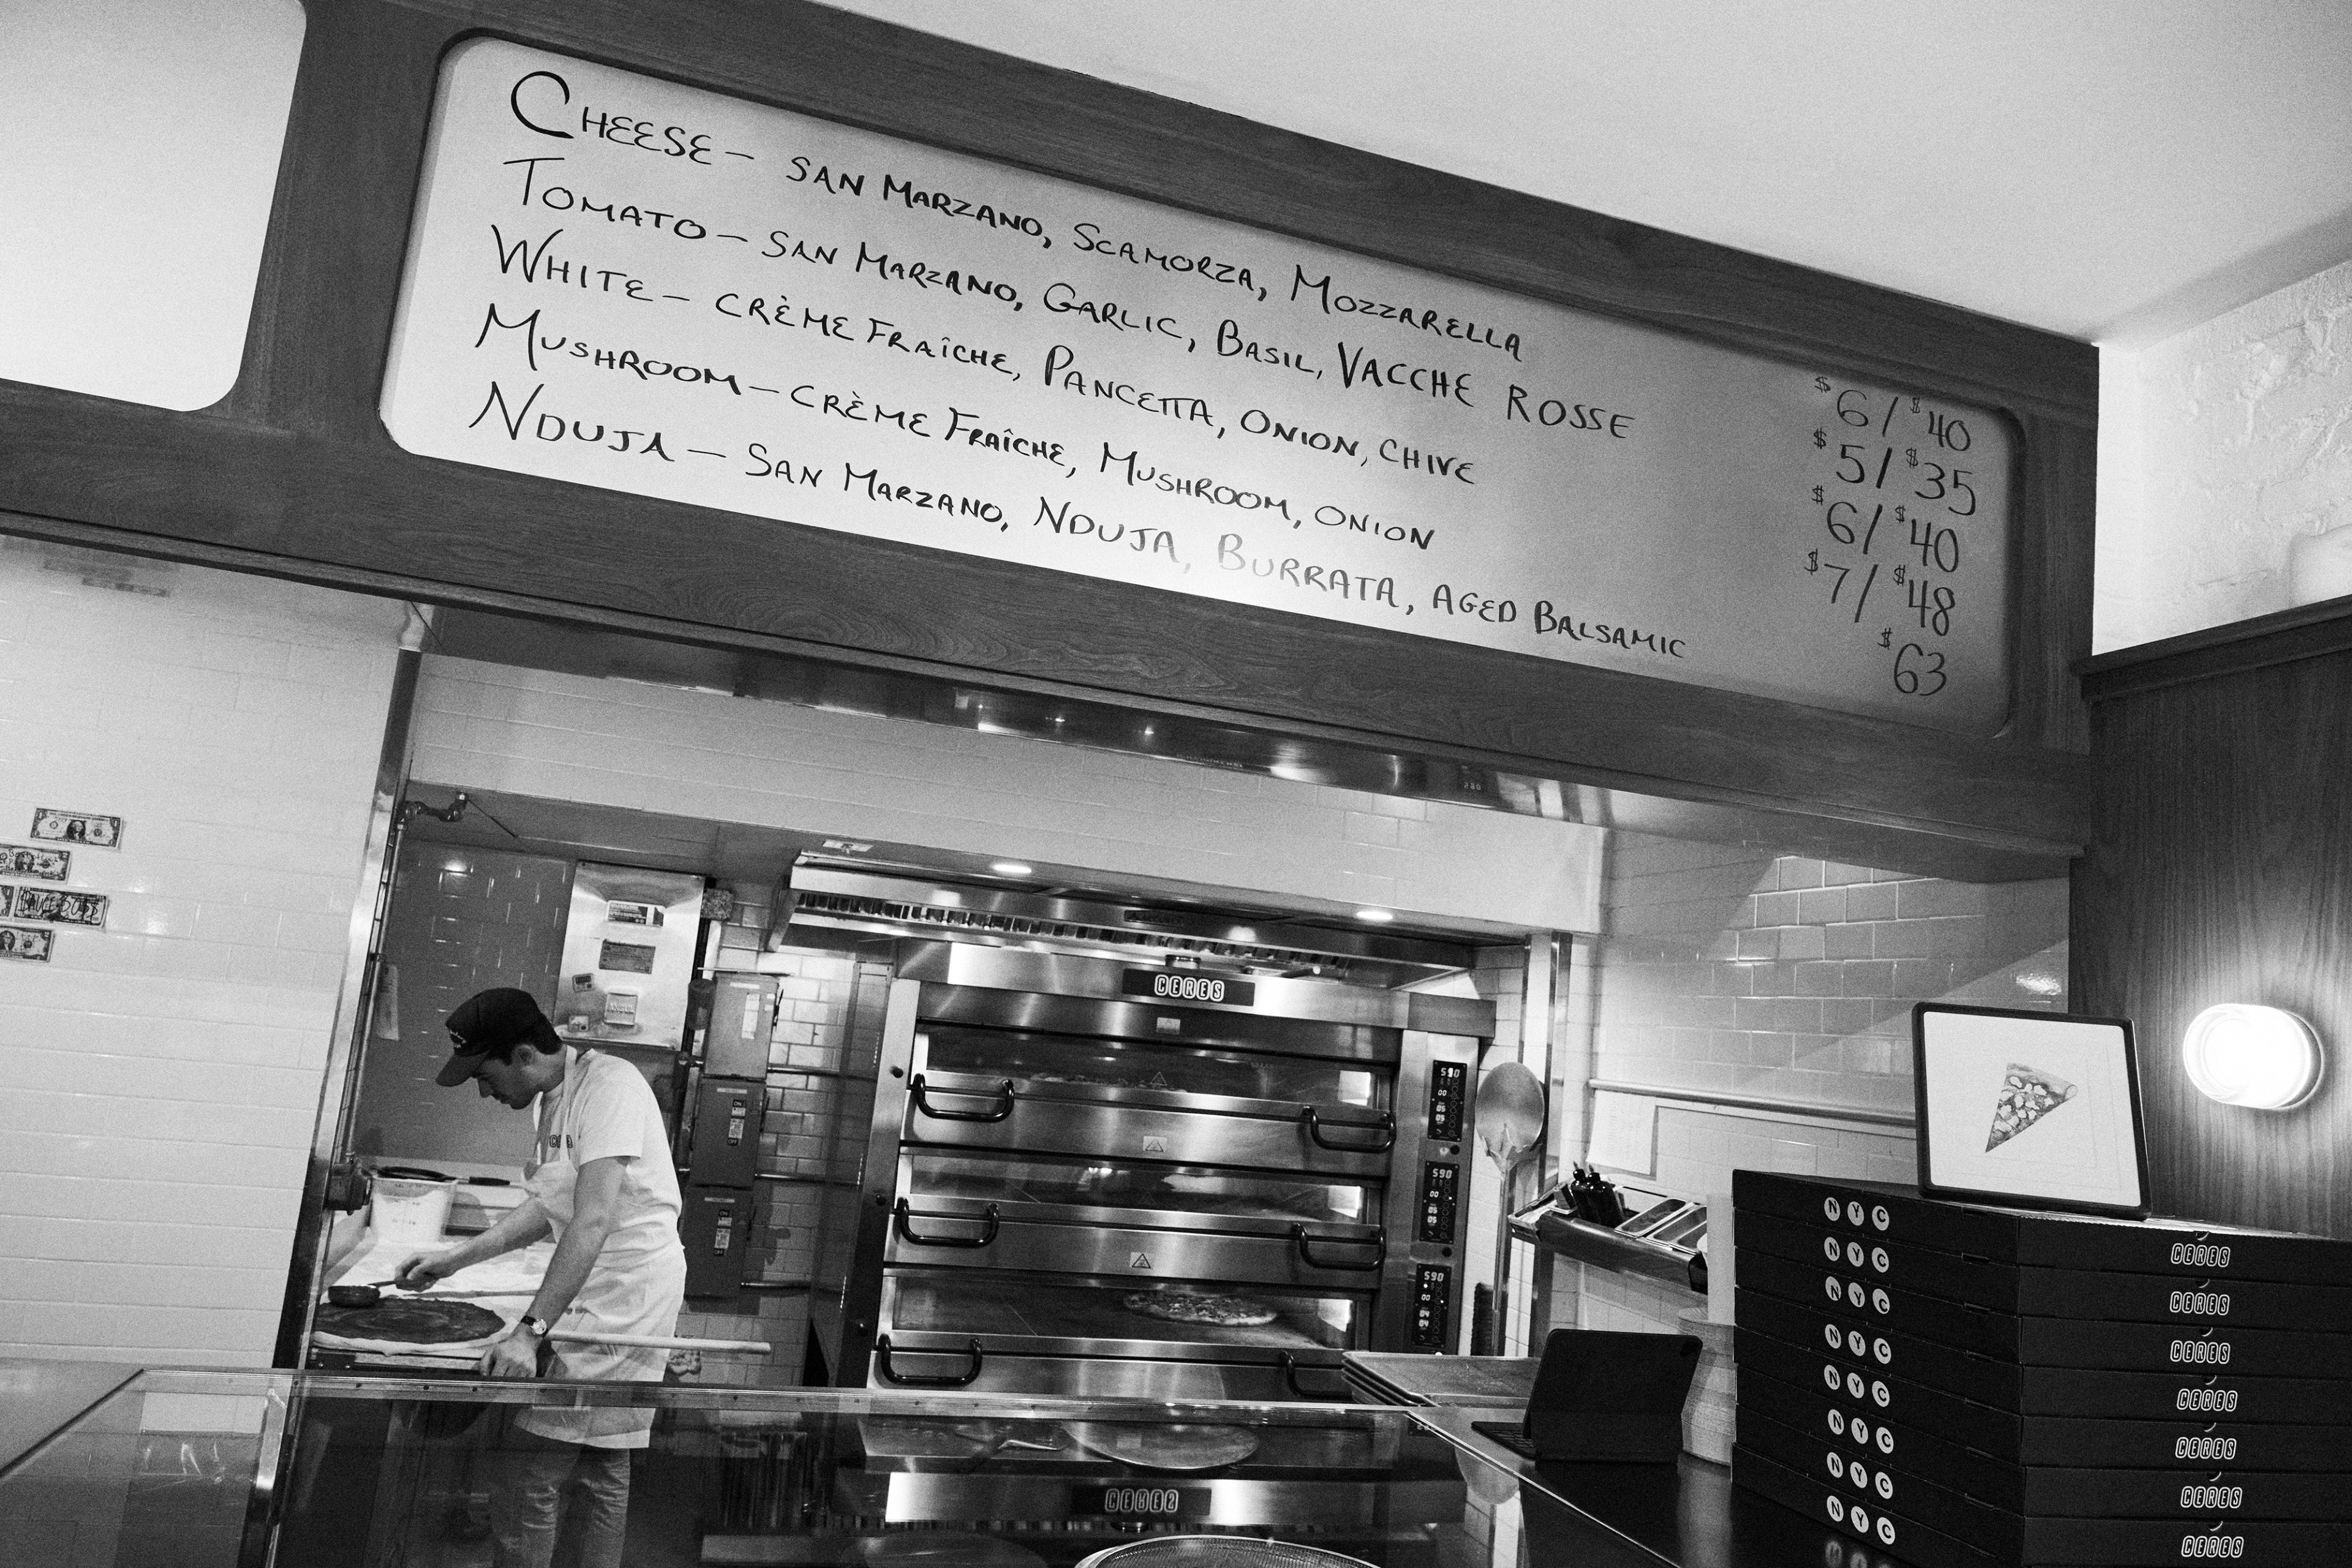 CHEESE — SAN MARZANO, SCAMORZA, MOZZARELLA $6/$40
TOMATO — SAN MARZANO, GARLIC, BASIL, VACCHE ROSSE $5/$35
WHITE — CRÈME FRAÎCHE, PANCETTA, ONION, CHIVE $6/$40
MUSHROOM — CRÈME FRAÎCHE, MUSHROOM, ONION $7/$48
NDUJA — SAN MARZANO, NDUJA, BURRATA, AGED BALSAMIC $63
CERES
590
590
590
NYC CERES
NYC CERES
NYC CERES
NYC CERES
NYC CERES
NYC CERES
NYC CERES
NYC
CERES